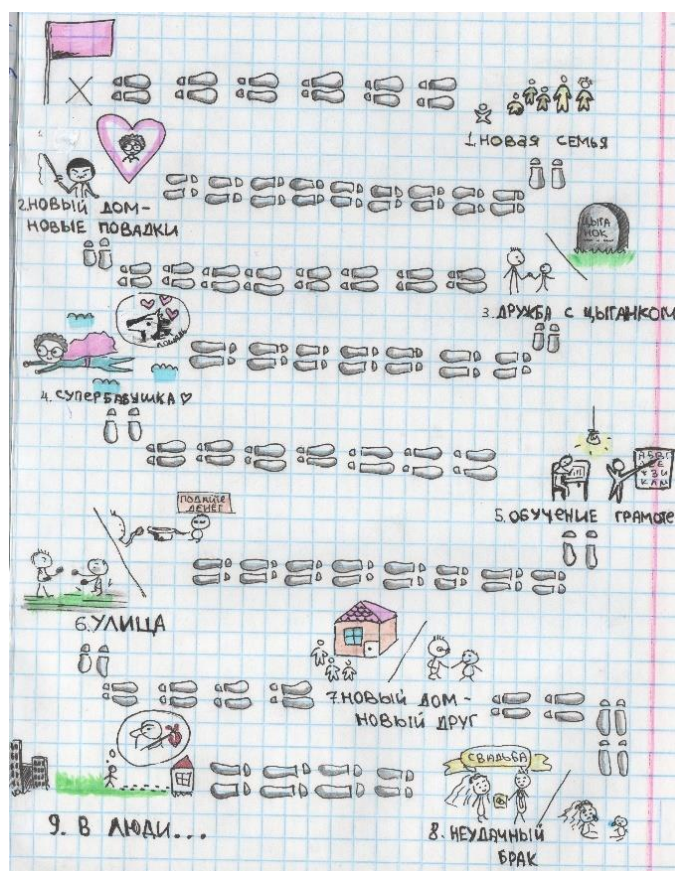 1. НОВАЯ СЕМЬЯ
2. НОВЫЙ ДОМ-
НОВЫЕ ПОВАДКИ
ЦЫГА
НОК
3. ДРУЖБА С ЦЫГАНКОМ
4. СУПЕРБАБУШКА ♡
АБВГ
КЛМ
5. ОБУЧЕНИЕ ГРАМОТЕ
ПОДАЙТЕ
ДЕНЕГ
6. УЛИЦА
7. НОВЫЙ ДОМ-
НОВЫЙ ДРУГ
СВАДЬБА
8. НЕУДАЧНЫЙ
БРАК
9. В ЛЮДИ...